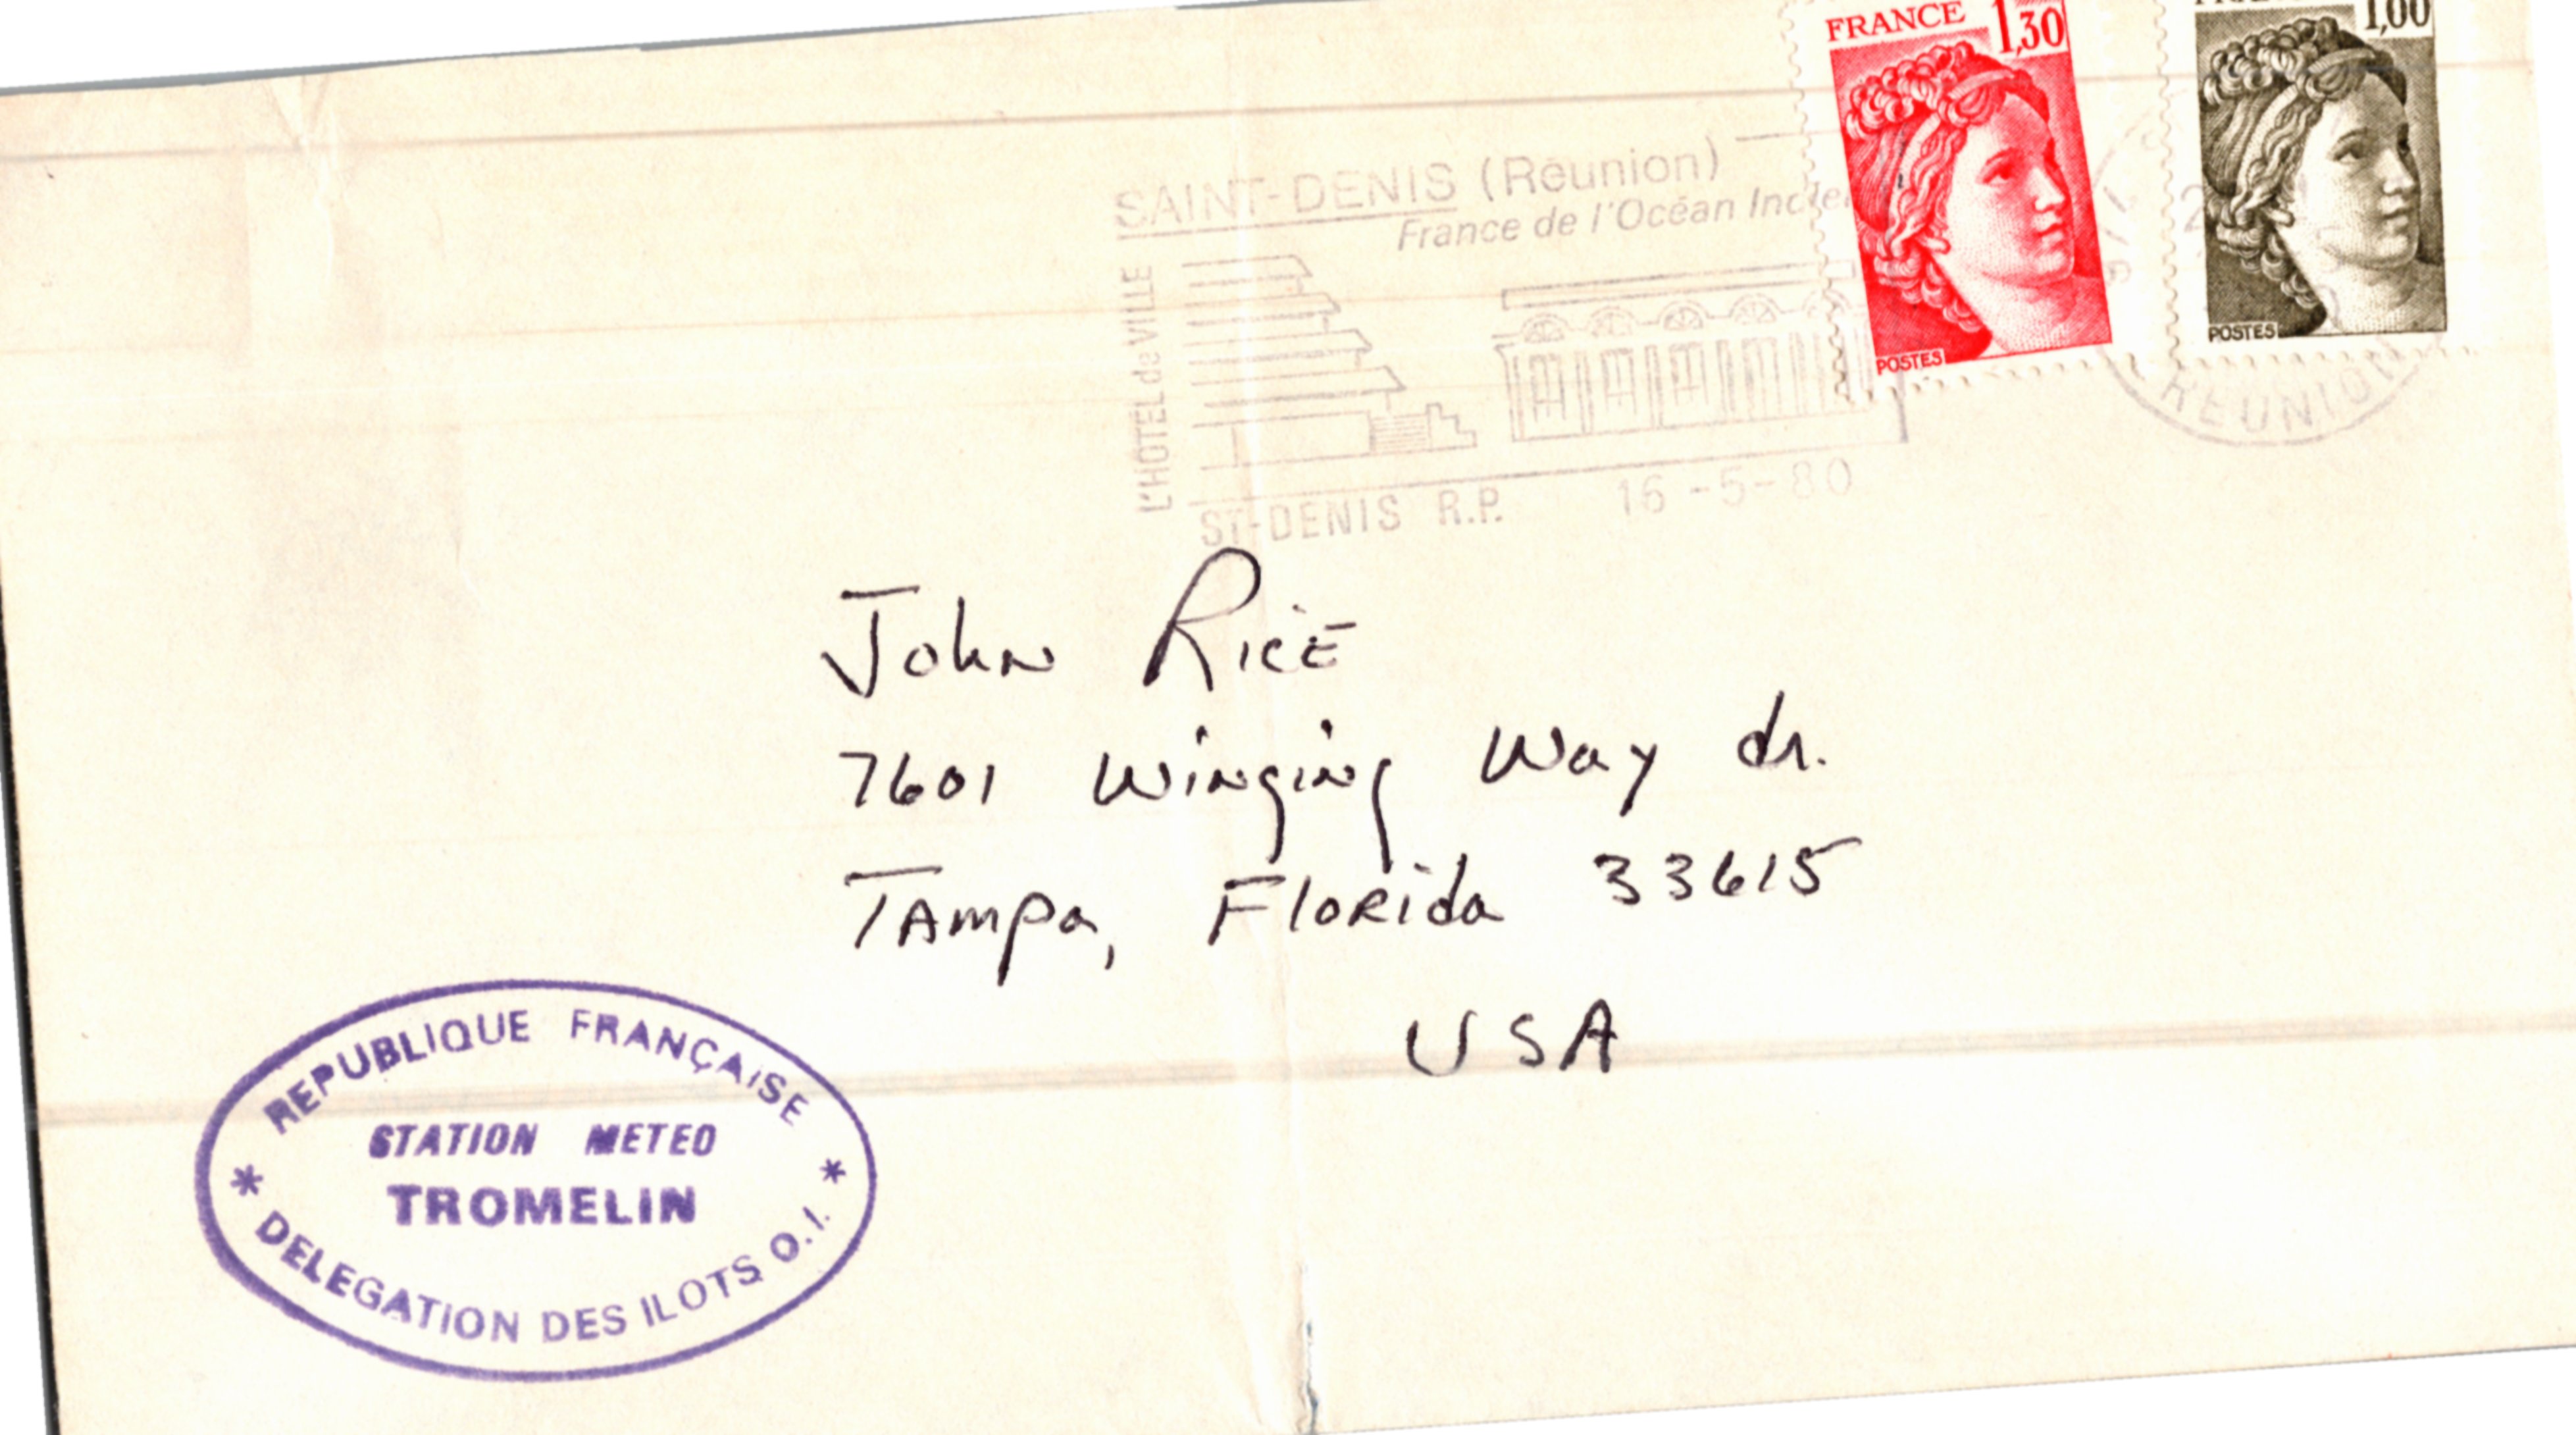 FRANCE 1,30
POSTES
1,00
POSTES
SAINT-DENIS (Réunion)
France de l'Océan
L'HOTEL de VILLE
ST-DENIS R.P. 16-5-80
REUNION
John Rice
7601 Winging Way dr.
Tampa, Florida 33615
USA
REPUBLIQUE FRANÇAISE
STATION METEO
TROMELIN
* DELEGATION DES ILOTS O.I. *